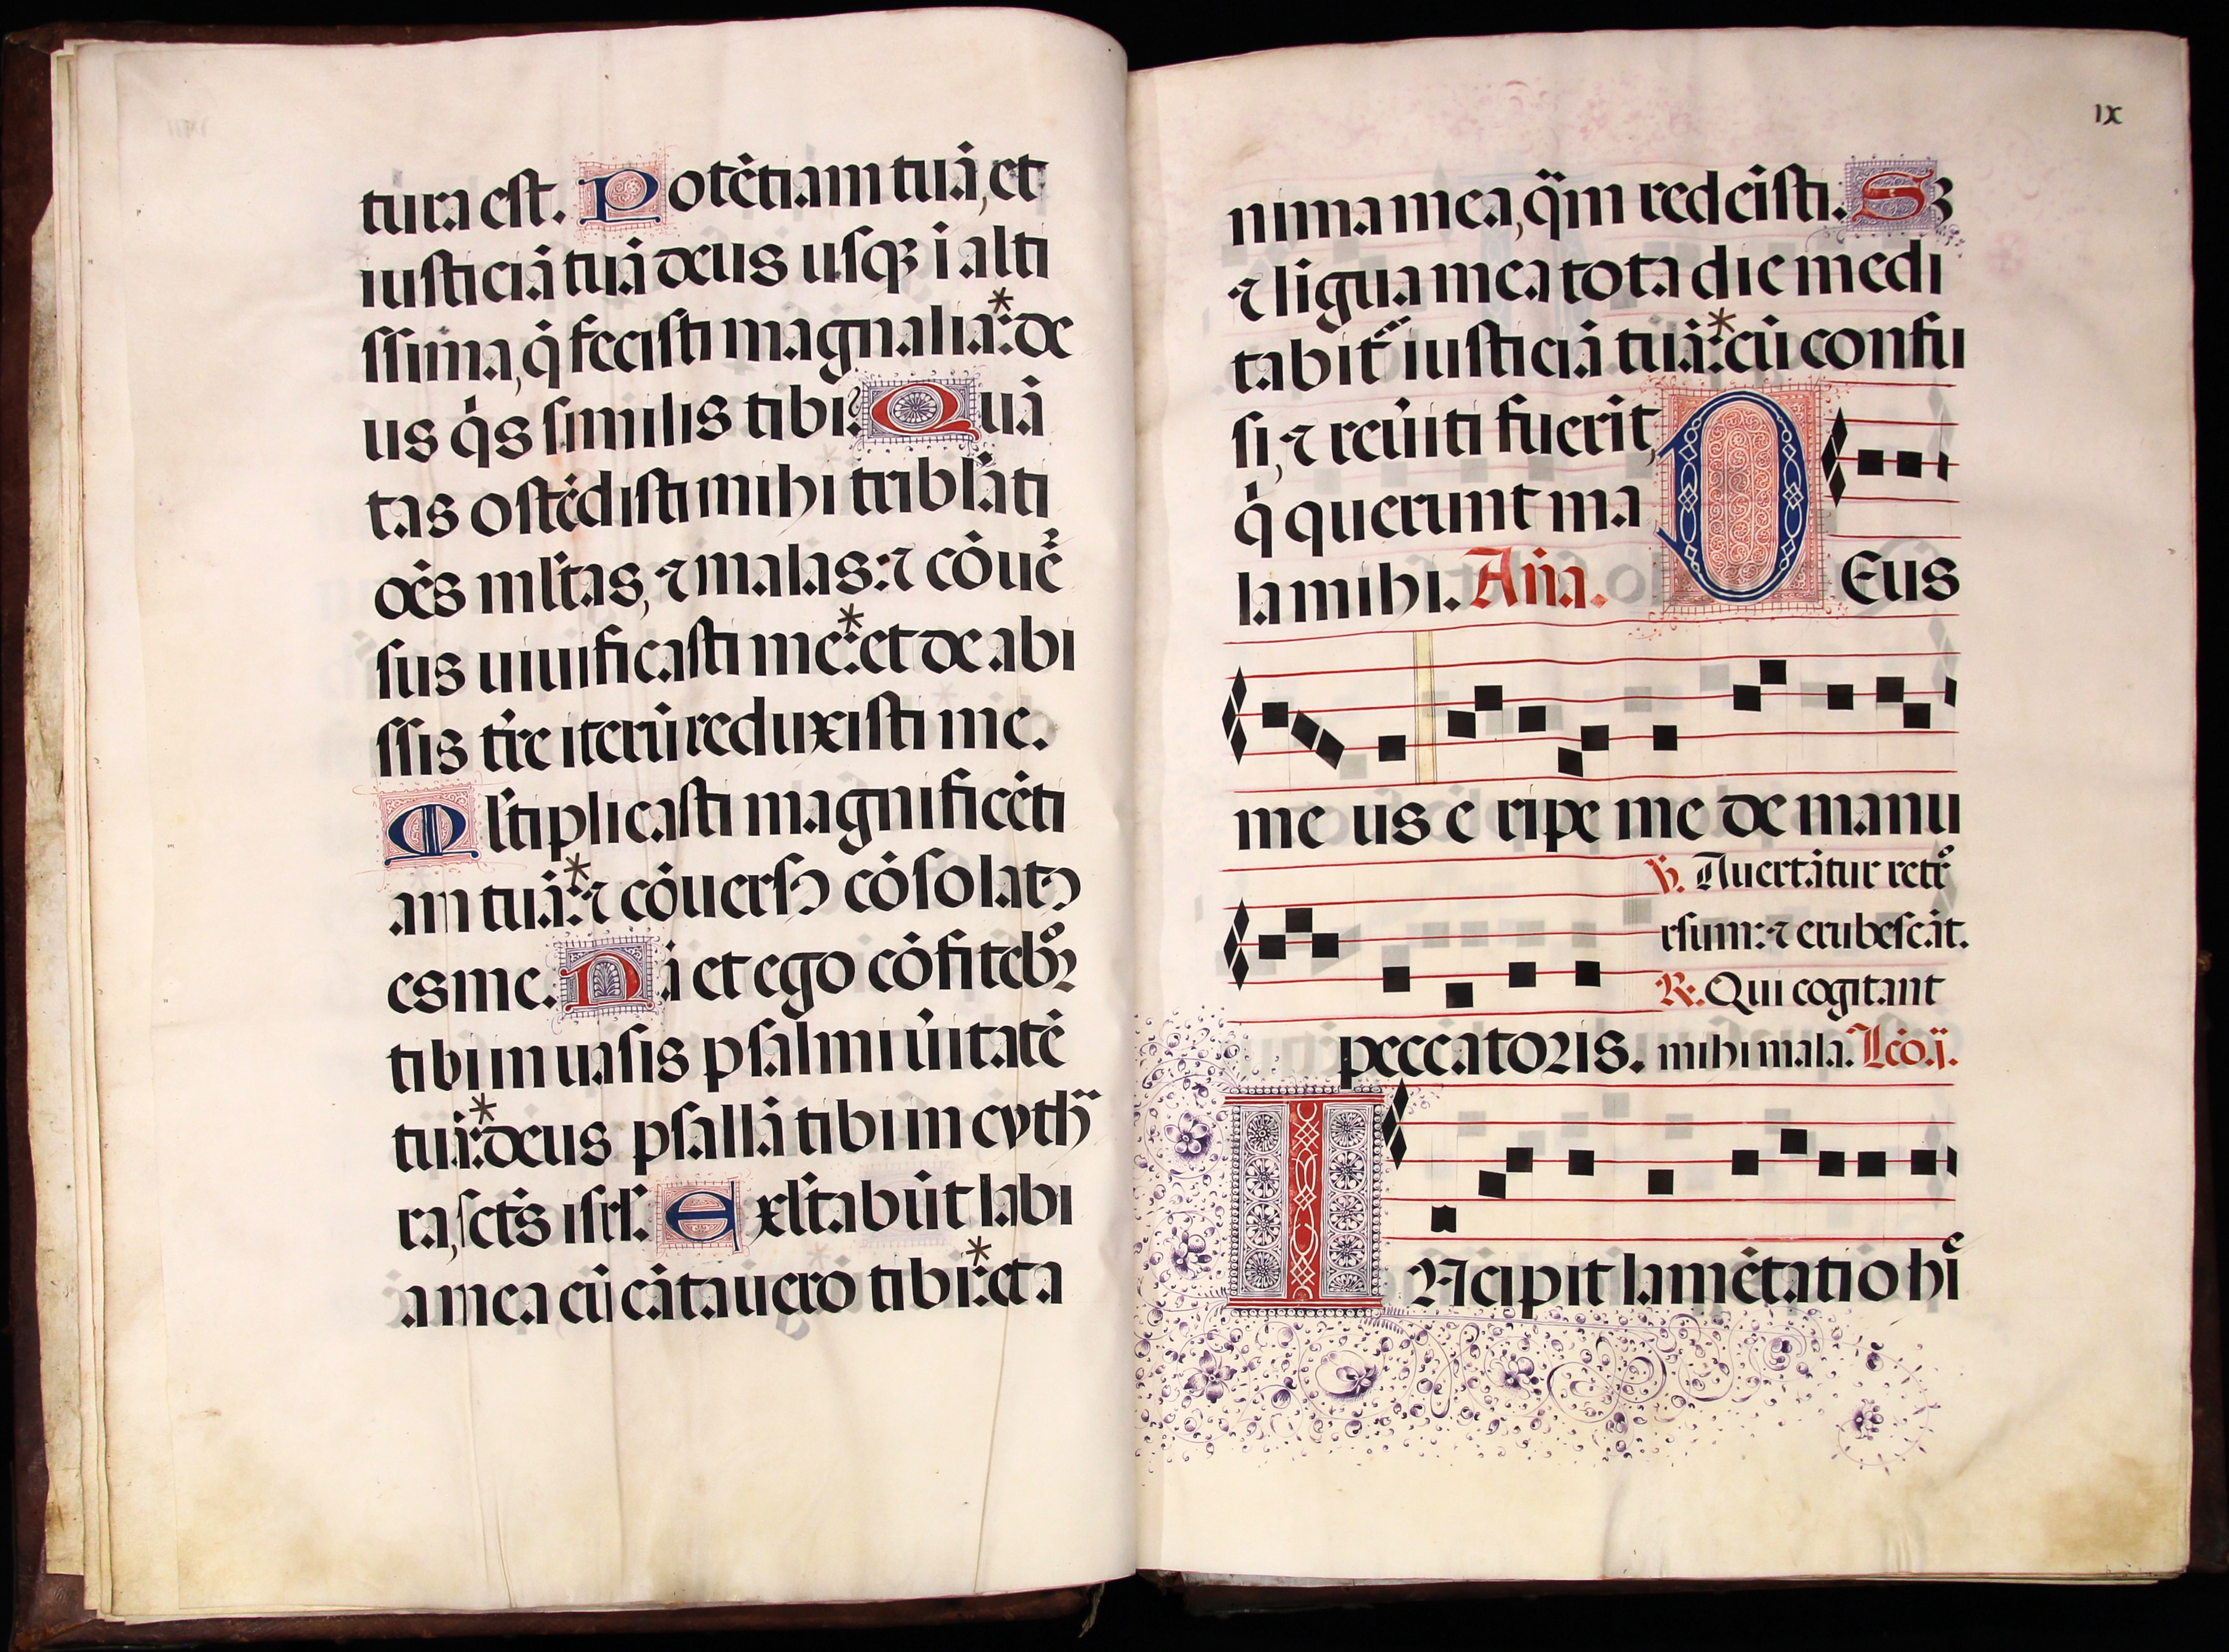 tura est. Potẽtiam tuã, et
iusticiã tuã deus usqꝫ ĩ alti
ssima, q̃ fecisti magnalia:* de
us q̃s similis tibi? Quã
tas ostẽdisti mihi tribl̃ati
oẽs ml̃tas, ⁊ malas: ⁊ cõuẽ
sus uiuificasti me:* et de abi
ssis tr̃e iterũ reduxisti me.
Ml̃tiplicasti magnificẽti
am tuã:* ⁊ cõuersꝰ cõsolatꝰ
es me. Nã et ego cõfitebor
tibi in uasis psalmi ũitatẽ
tuã:* deus psallã tibi in cyth̃
ra, sct̃s isrl̃. Exl̃tabũt labi
a mea cũ cãtauero tibi:* et a
IX
nima mea, qm̃ redẽisti. Sꝫ
⁊ ligua mea tota die medi
tabit᷑ iusticiã tuã:* cũ confu
si, ⁊ reũiti fuerĩt,
q̃ querunt ma
la mihi. Añа. DEus
me us e ripe me de manu
℣. Auertãtur retr̃o
rsum: ⁊ erubescãt.
℟. Qui cogitant
peccatoris. mihi mala. Lc̃o.j.
INcipit lamẽtatio hĩe